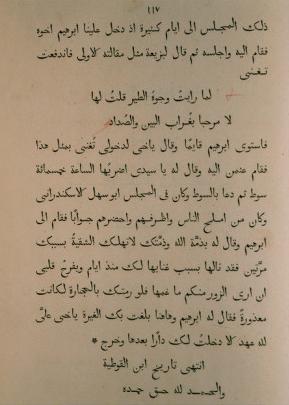 ١١٧
ذلك المجلس الى ايام كثيرة اذ دخل علينا ابرهيم اخوه
فقام اليه واجلسه ثم قال لبزيعة مثل مقالته الاولى فاندفعت
تغنى
لما رايتُ وجوهَ الطير قلتُ لها
لا مرحبا بغُراب البين والصُّرَد
فاستوى ابرهيم قائمًا وقال ياخى لدخولى تُغنى بمثل هذا
فقام عنهن اليه وقال له يا سيدى اضربُها الساعة خمسمائة
سوط ثم دعا بالسوط وكان فى المجلس ابو سهل الاسكندرانى
وكان من املح الناس واظرفهم واحضرهم جوابًا فقام الى
ابرهيم وقال له بذمّة الله وذمّتك لا تهلك الشقيةُ بسببك
مرّتين فقد نالها بسبب غنايها لك منذ ايام ويفرح قلبى
ان ارى الزور منكم ما غمها فلو رمتك بالحجارة لكانت
معذورةً فقال له ابرهيم وهاهنا بلغت بك الغيرة ياخى علىَّ
لله عهد لا دخلتُ لك دارًا بعدها وخرج *
انتهى تاريخ ابن القوطية
والحمد لله حق حمده